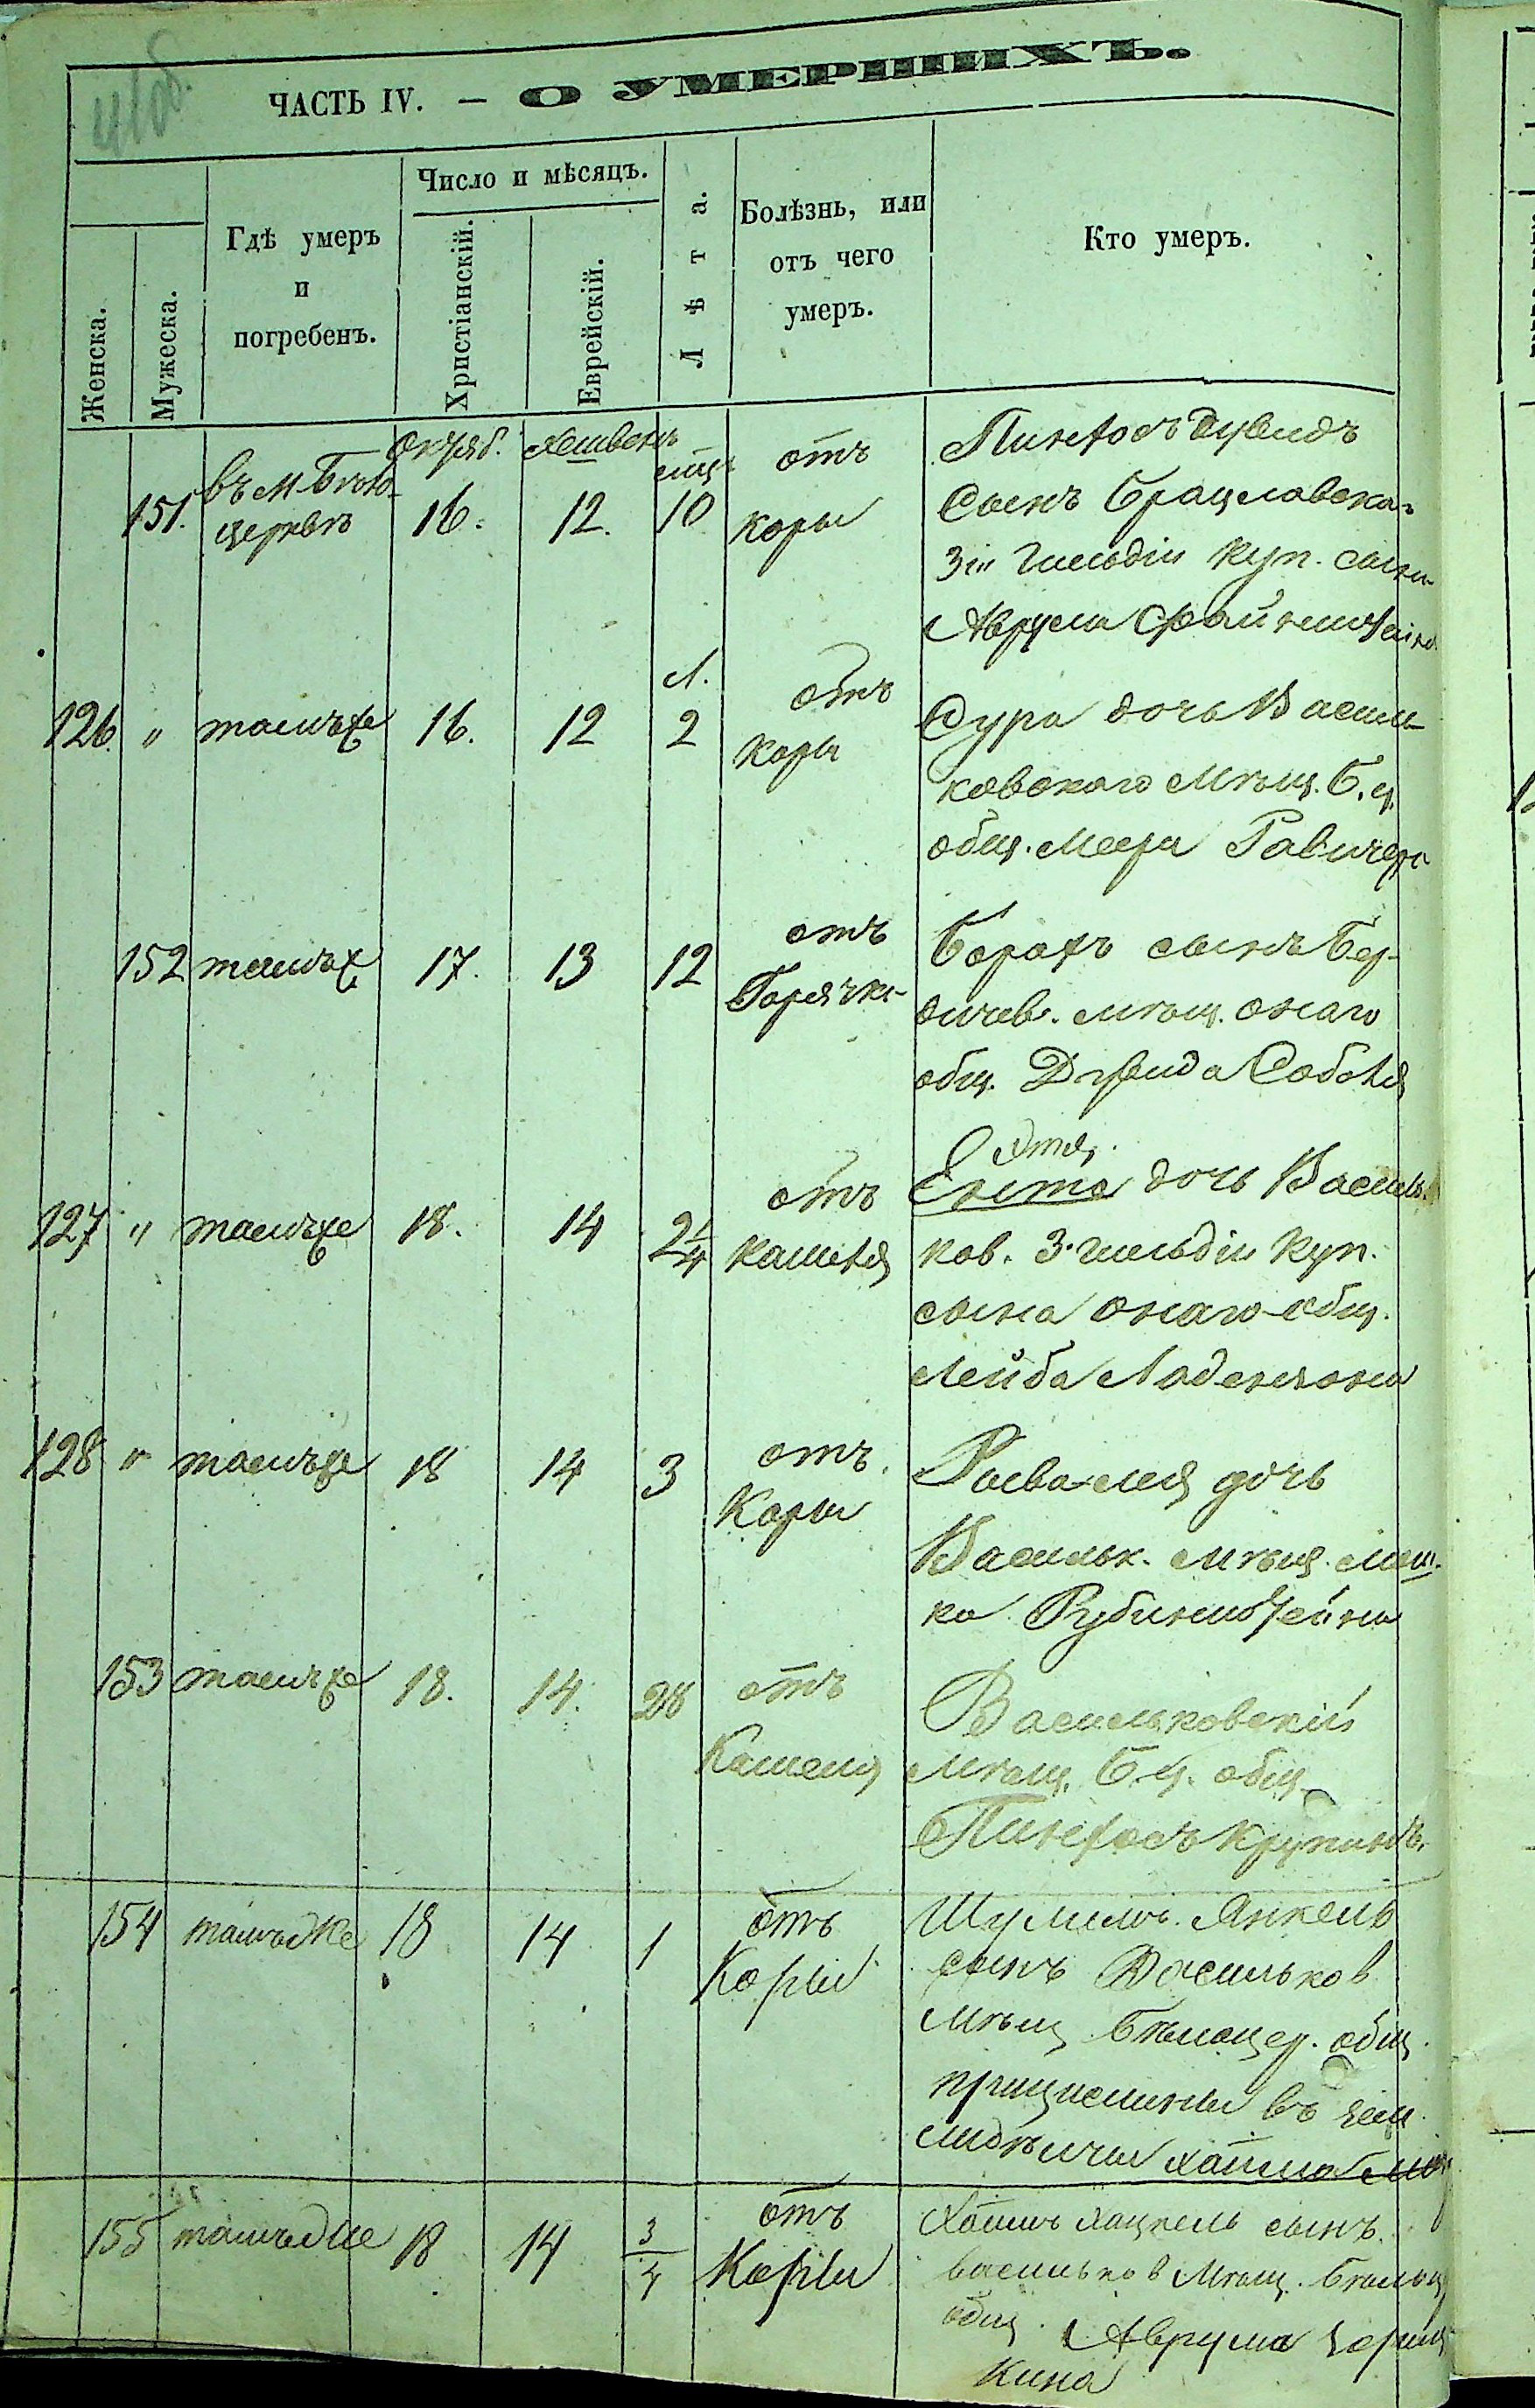 41об.
ЧАСТЬ IV. — О УМЕРШИХЪ.
Женска.
Мужеска.
Гдѣ умеръ
и
погребенъ.
Число и мѣсяцъ.
Христіанскій.
Еврейскій.
Лѣта.
Болѣзнь, или
отъ чего
умеръ.
Кто умеръ.
Октяб. Хешвень
151. въ м. Бѣло-
церкви 16. 12. мѣц 10 отъ
коры
Пинхосъ Дувидъ
Сынъ Брацлавска.
3й Гильдіи Куп. сына
Аврума Файнштейна
126. " тамъже 16. 12 Л. 2 отъ
коры
Сура дочь Василь-
ковскаго Мѣщ. Б. ц.
общ. Меера Равичера
152 тамъже 17. 13 12 отъ
Горячки
Борохъ сынъ Бер-
дичев. мѣщ. онаго
общ. Дувида Соболя
127 " тамъже 18. 14 2 1/4 отъ
кашля
Ента дочь Василь
ков. 3. гильдіи Куп.
сына онаго общ.
Лейба Ладензона
128 " тамъже 18 14 3 отъ
Коры
дочь
Васильк. мѣщ. Мош
ка Рубинштейна
153 тамъже 18. 14. 28 отъ
Кашеля
Васильковскій
мѣщ. Б. ц. общ.
Пинхосъ Крупникъ.
154 тамъже 18 14 1 отъ
Коры
Шулимъ. Янкель
сынъ Васильков
мѣщ Бѣлоцер. общ.
въ
Хаима
155 тамъже 18 14 3/4 отъ
Коры
Хаимъ Хацкель сынъ
Васильков Мѣщ. Бѣлоц
общ. Аврума
кина